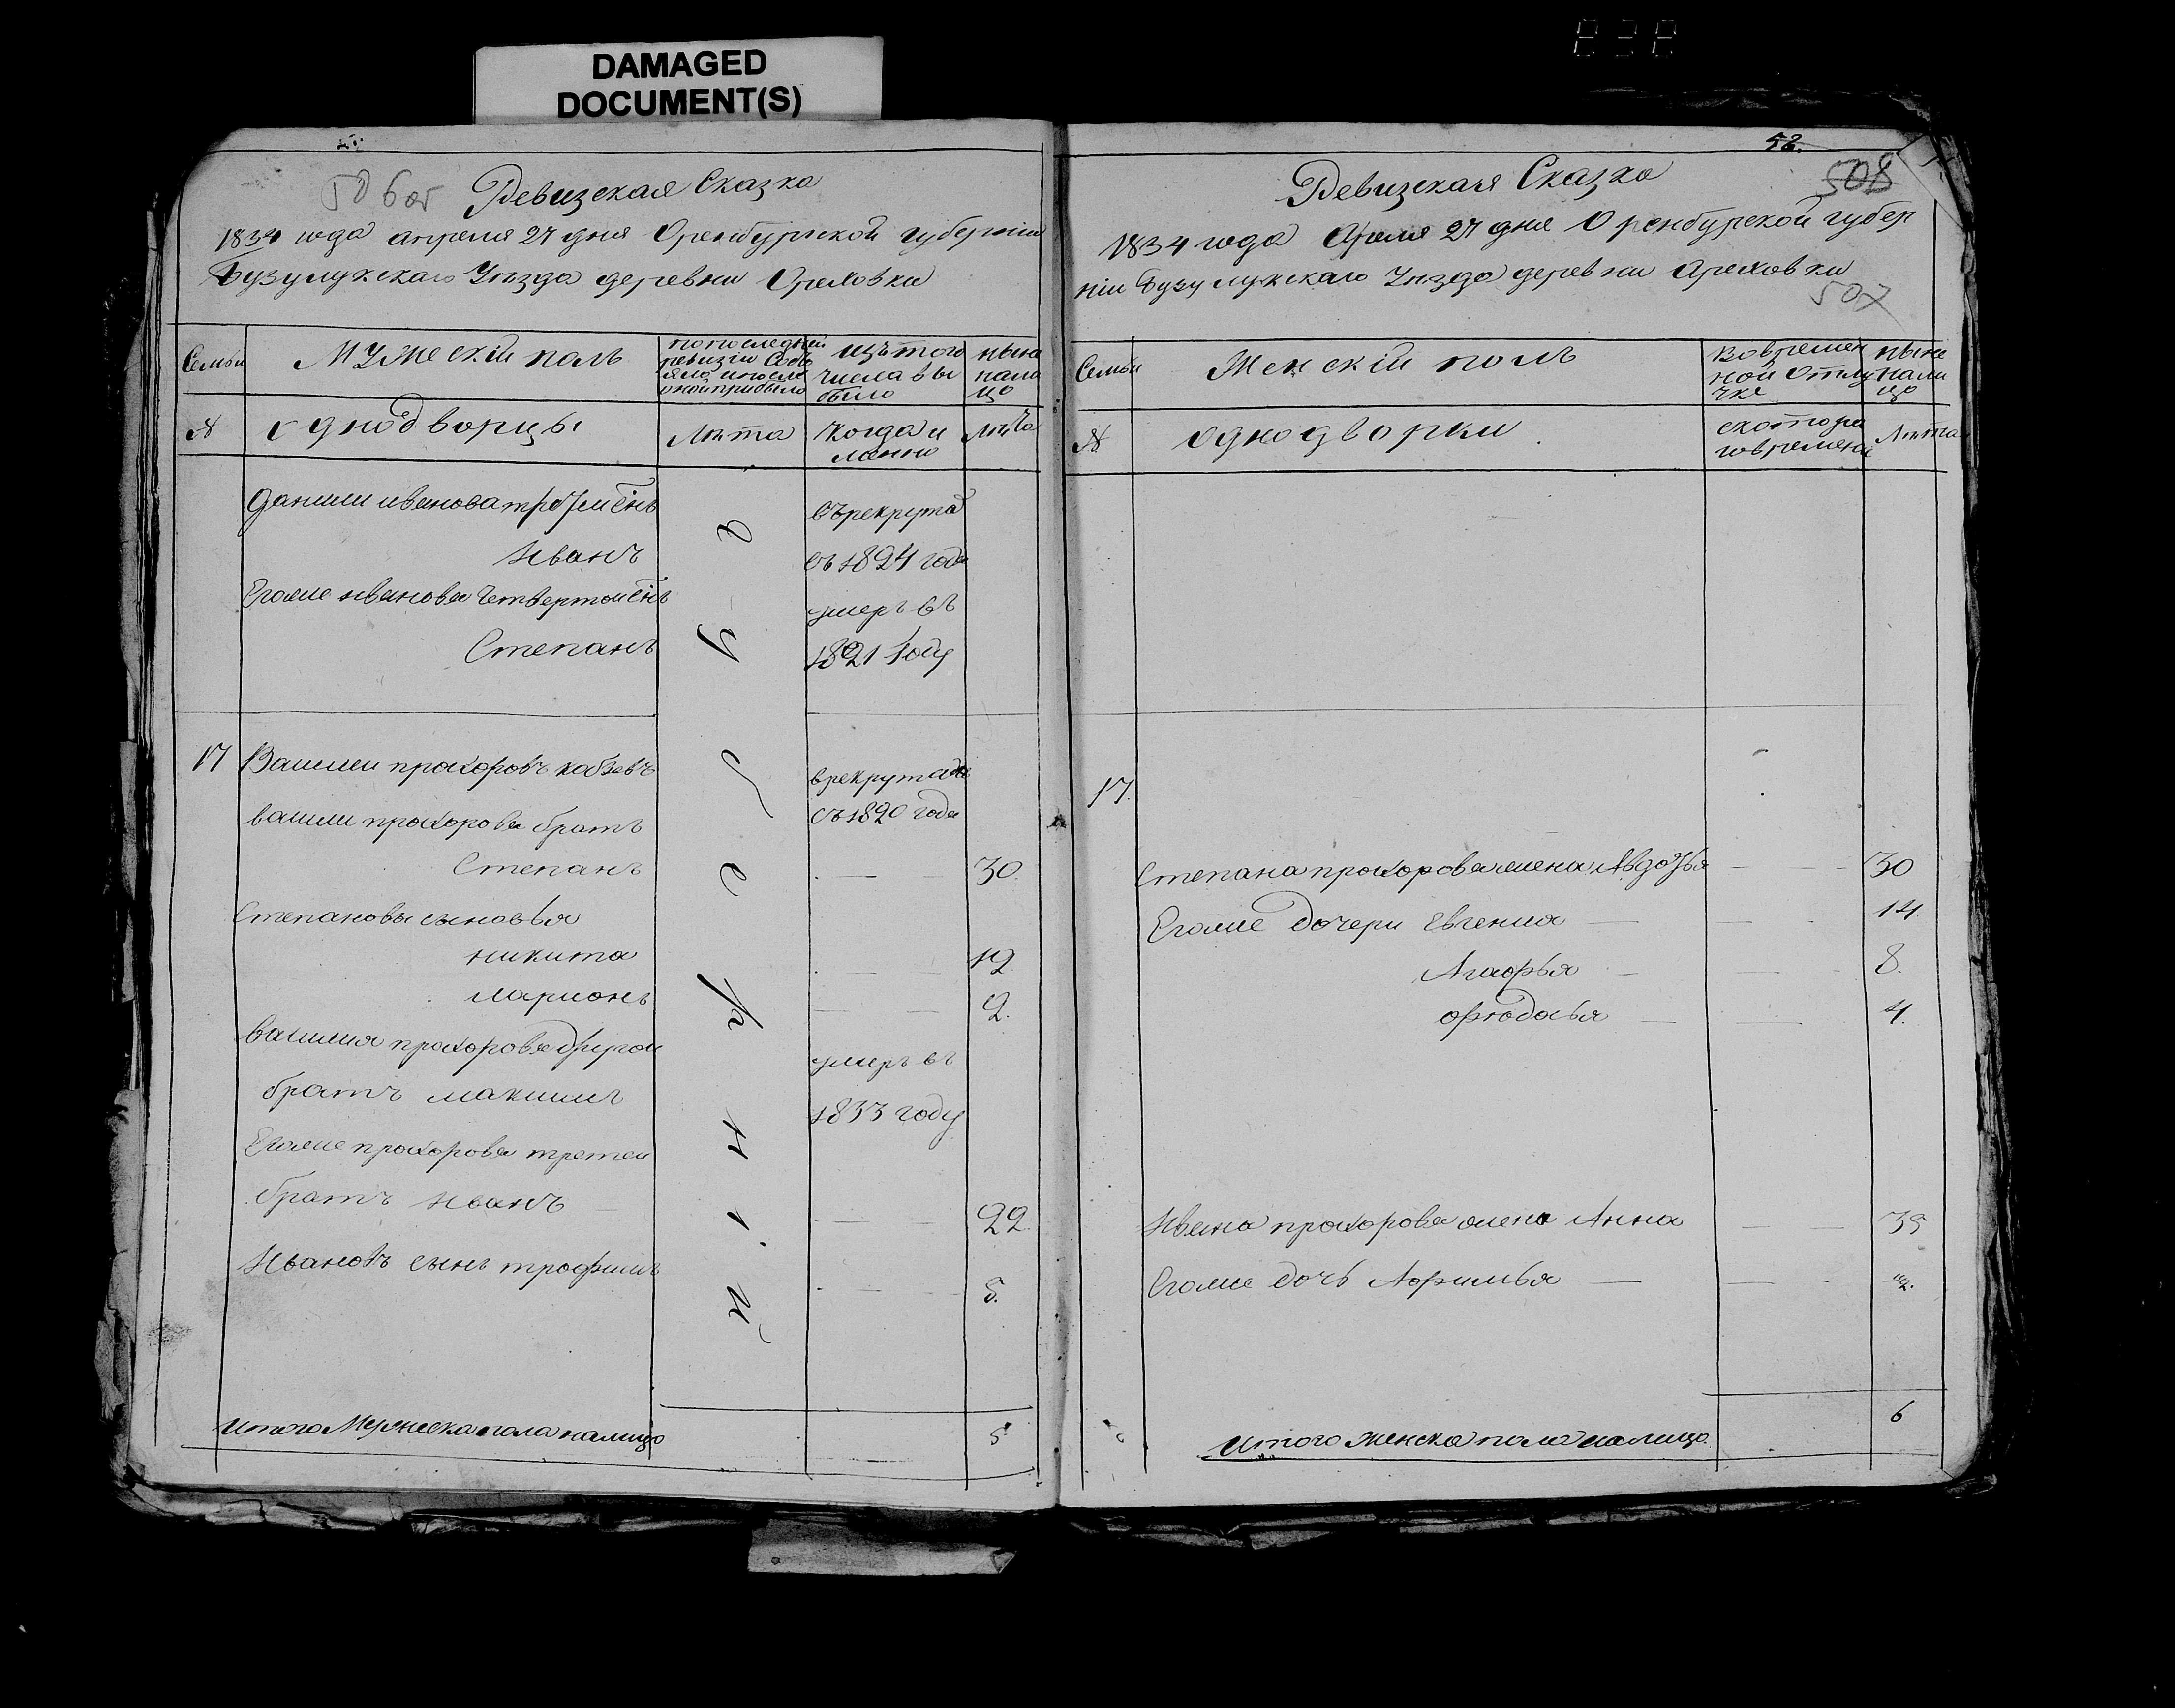 DAMAGED
DOCUMENT(S)
506об
Ревизская Сказка
1834 года апреля 27 дня Оренбургской губерніи
Бузулукскаго Уѣзда деревни Ореховки
Семьи
Мужескій полъ
по последней
ревизіи Состояло и после
оной прибыло
изъ того
числа вы
было
ныне
на ли
цо
№
однодворцы
Лѣта
Когда и
Лѣта
Данили иванова третей сынъ
Иванъ
въ рекрутах
съ 1824 года
Егоже иванова четвертой сынъ
Степанъ
умеръ въ
1821 году
17
Васили прохоровъ
в рекрутах
съ 1820 года
васили прохорова братъ
Степанъ
30
Степановы сыновья
никита
12
ларионъ
2.
василия прохорова другой
братъ максимъ
умеръ въ
1833 году
Егоже прохорова третей
братъ иванъ
22
Ивановъ сынъ трофимъ
5.
итого Мужеска пола налицо
5
52.
508
Ревизская Сказка
1834 года Апреля 27 дня Оренбурской губер
ніи Бузулукскаго Уѣзда деревни Ареховки
507
Семьи
Женскій полъ
во времен
ной отлу
чке
ныне
нали
цо
№
однодворки
с котора
го времени
Лѣта
17.
Степана прохорова жена Авдотья
30
Егоже дочери Евгения
14.
Агафья
8.
4.
Ивана прохорова жена Анна
35
Егоже дочь Афимья
2.
6
итого женска пола налицо